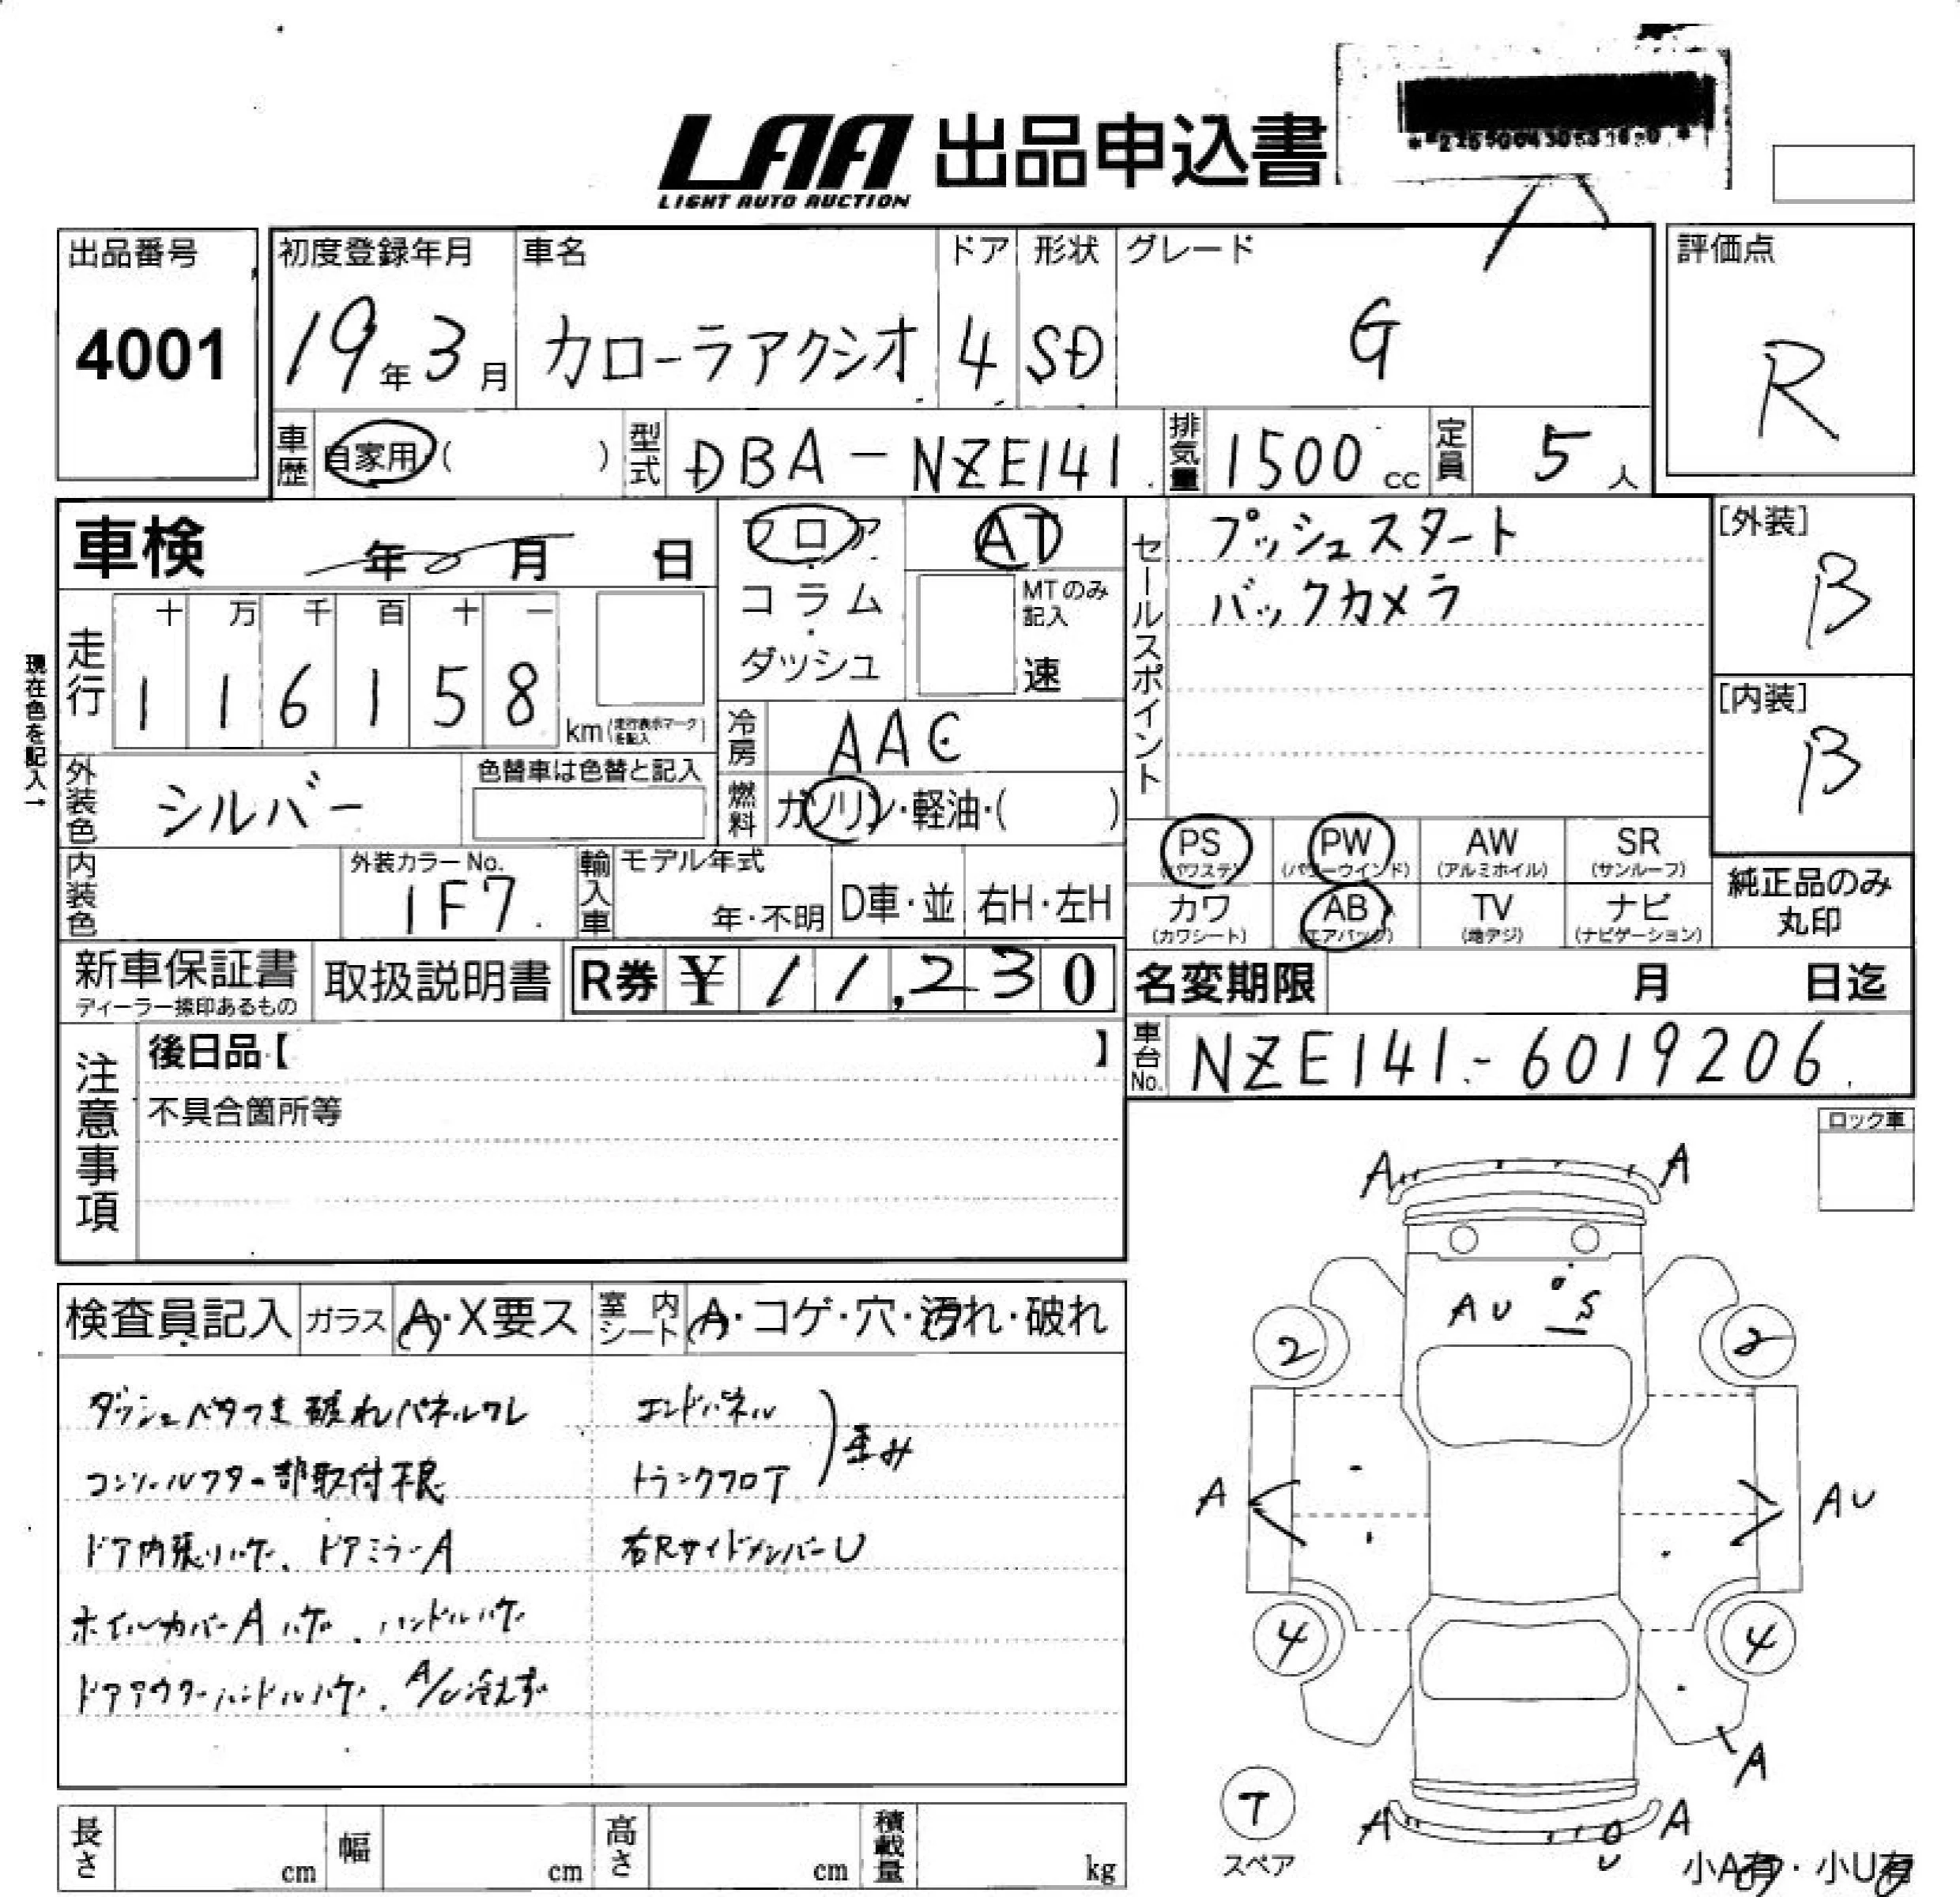 LAA 出品申込書
LIGHT AUTO AUCTION
出品番号 初度登録年月 車名 ドア 形状 グレード 評価点
4001 19年3月 カローラアクシオ 4 SD G R
車歴 自家用( ) 型式 DBA-NZE141 排気量 1500cc 定員 5人
車検 年 月 日 フロア・コラム・ダッシュ AT
MTのみ記入 速
セールスポイント
プッシュスタート
バックカメラ
[外装] B
[内装] B
現在色を記入→
走行 十 万 千 百 十 一
1 1 6 1 5 8 km(走行表示マークを記入)
冷房 AAC
外装色 シルバー 色替車は色替と記入
燃料 ガソリン・軽油・( )
内装色 外装カラーNo. 1F7 輸入車 モデル年式 年・不明 D車・並 右H・左H
PS (パワステ) PW (パワーウインド) AW (アルミホイル) SR (サンルーフ)
カワ (カワシート) AB (エアバッグ) TV (地デジ) ナビ (ナビゲーション)
純正品のみ
丸印
新車保証書 ディーラー捺印あるもの 取扱説明書 R券 ¥11,230 名変期限 月 日迄
車台No. NZE141-6019206
注意事項
後日品【 】
不具合箇所等
ロック車
検査員記入 ガラス A・X要ス 室内シート A・コゲ・穴・汚れ・破れ
ダッシュベタつき 破れ パネルワレ エンドパネル
コンソールフター部取付不良 トランクフロア 歪み
ドア内張りハゲ、ドアミラーA 右RサイドメンバーU
ホイルカバーA ハゲ、ハンドルハゲ
ドアアウターハンドルハゲ、A/C冷えず
A A
AU S
2 2
A AU
4 4
A
T
スペア
A A
U
小A有・小U有
長さ cm 幅 cm 高さ cm 積載量 kg